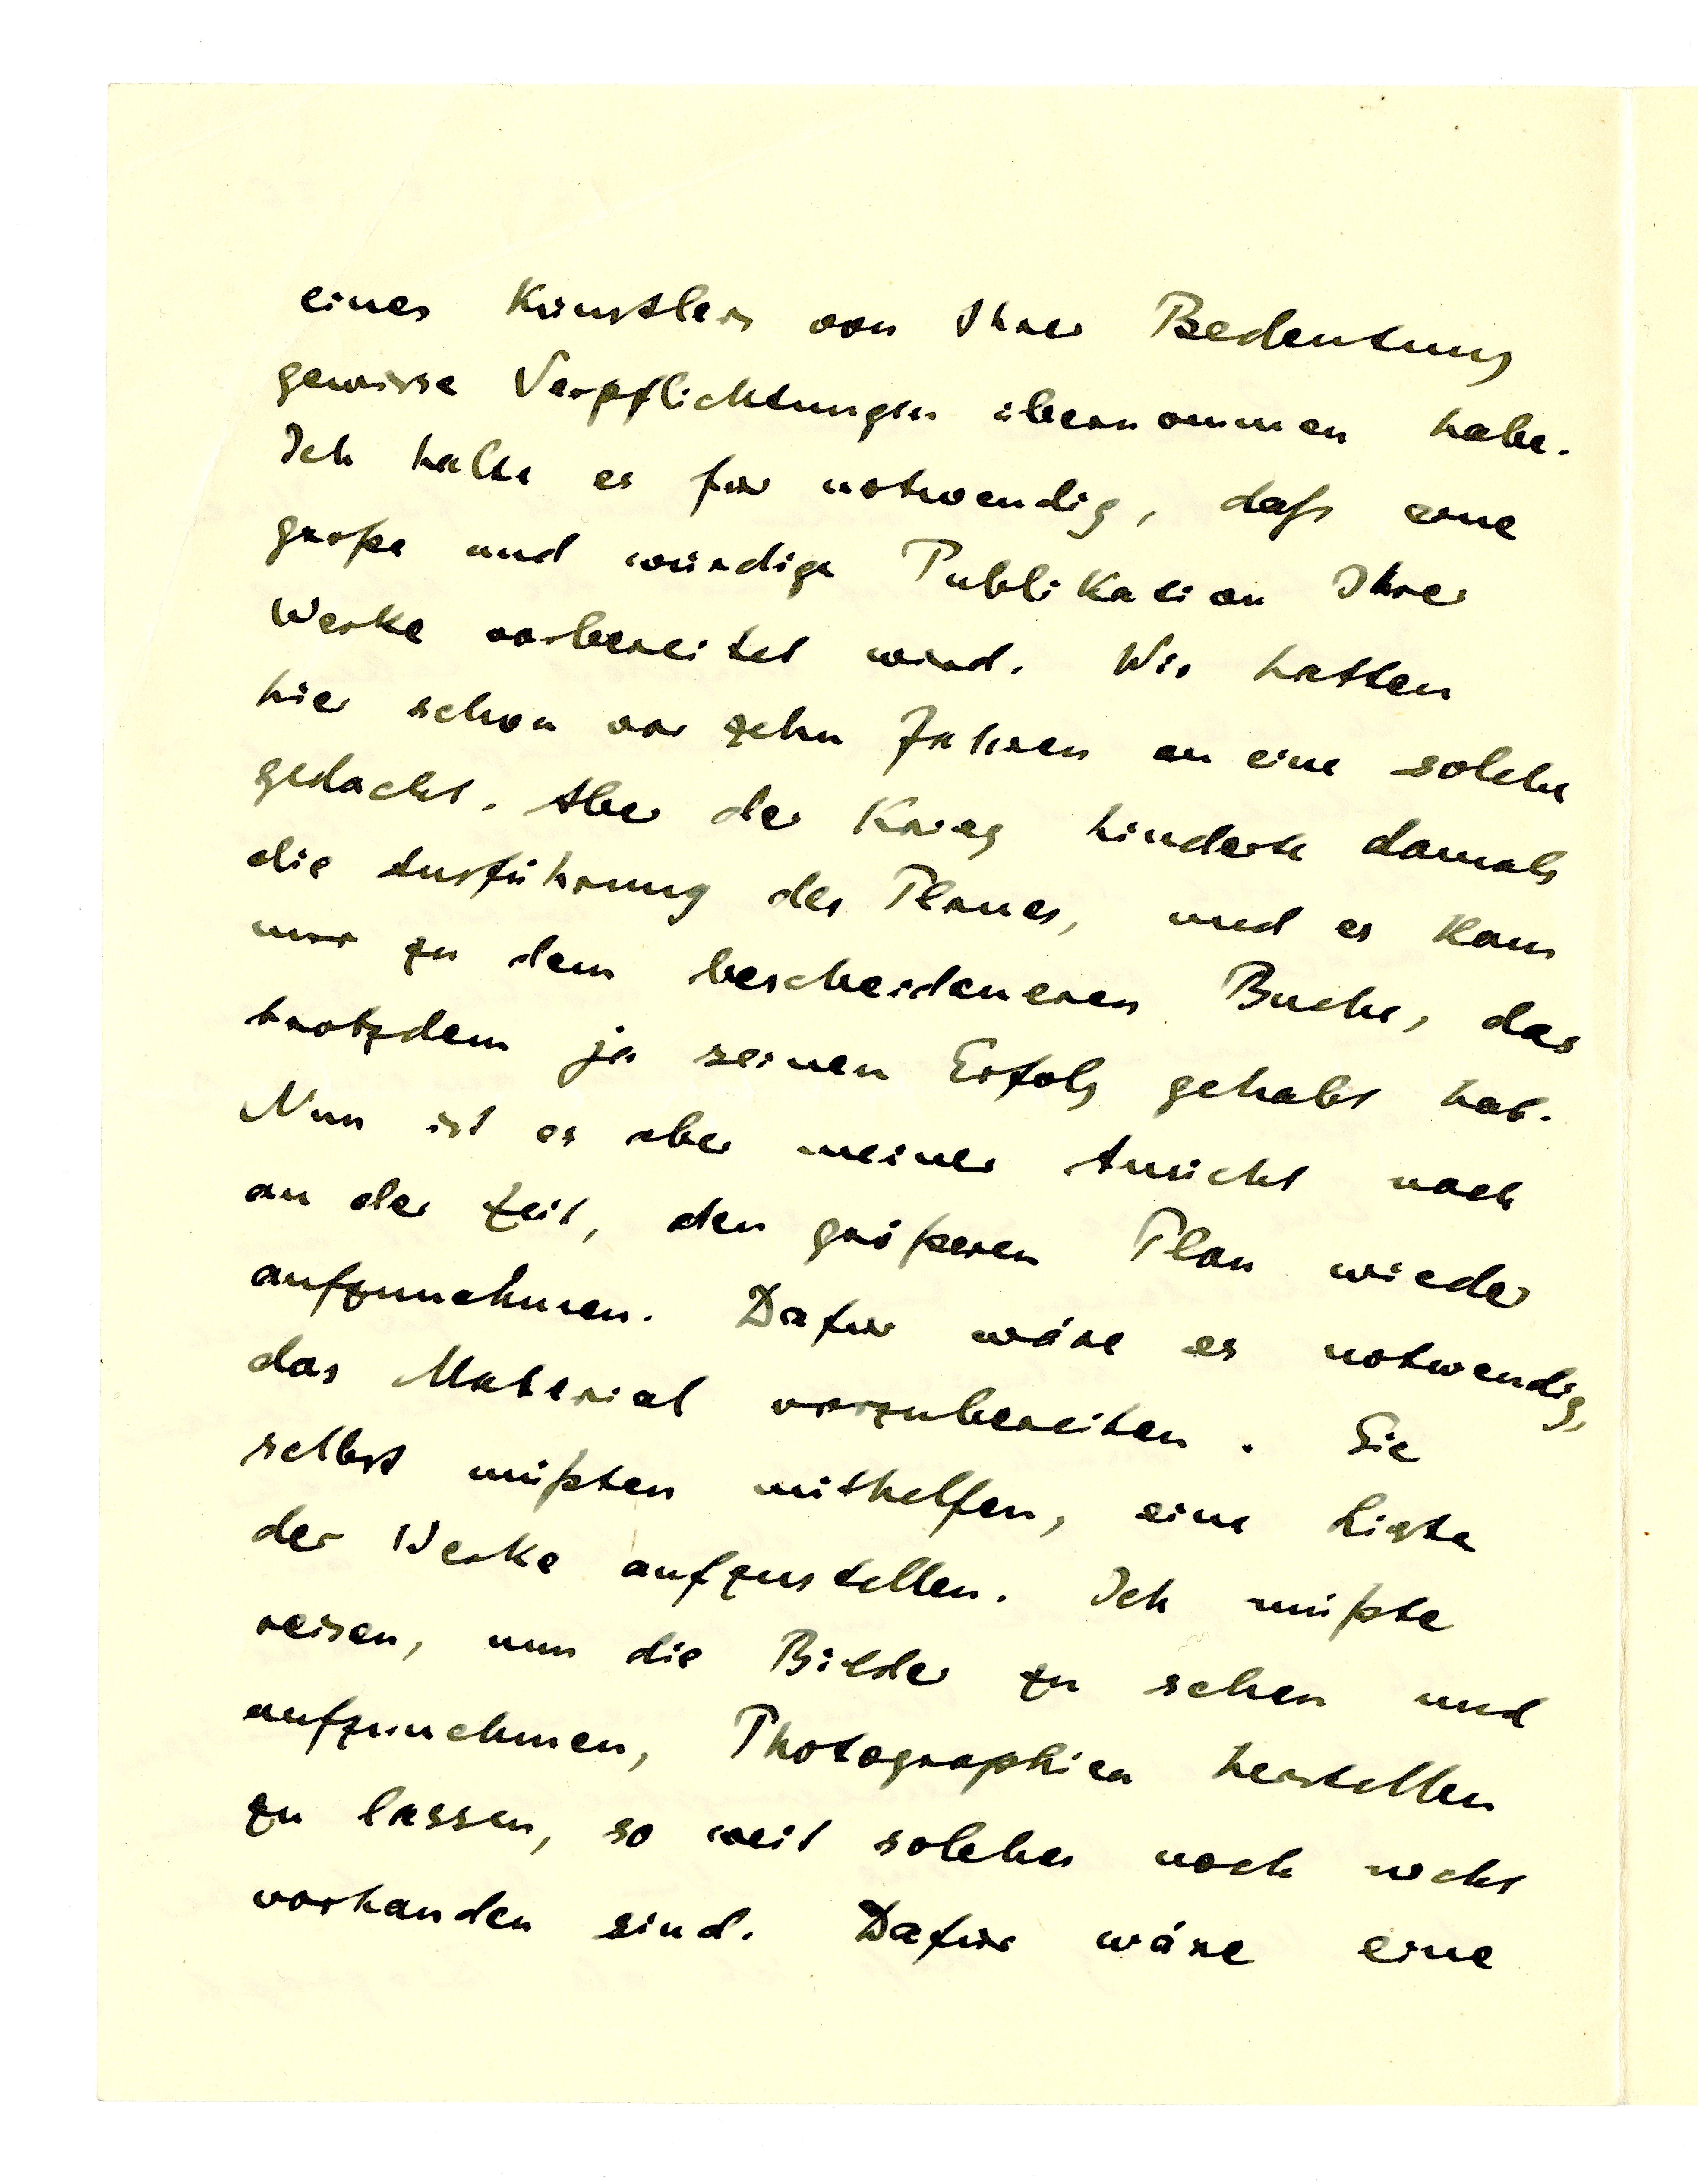 eines Künstlers von Ihrer Bedeutung
gewisse Verpflichtungen übernommen habe.
Ich halte es für notwendig, daß eine
große und würdige Publikation Ihrer
Werke vorbereitet wird. Wir hatten
hier schon vor zehn Jahren an eine solche
gedacht. Aber der Krieg hinderte damals
die Ausführung des Planes, und es kam
nur zu dem bescheideneren Buche, das
trotzdem ja seinen Erfolg gehabt hat.
Nun ist es aber meiner Ansicht nach
an der Zeit, den größeren Plan wieder
aufzunehmen. Dafür wäre es notwendig,
das Material vorzubereiten. Sie
selbst müßten mithelfen, eine Liste
der Werke aufzustellen. Ich müßte
reisen, um die Bilder zu sehen und
aufzunehmen, Photographien herstellen
zu lassen, so weit solche noch nicht
vorhanden sind. Dafür wäre eine